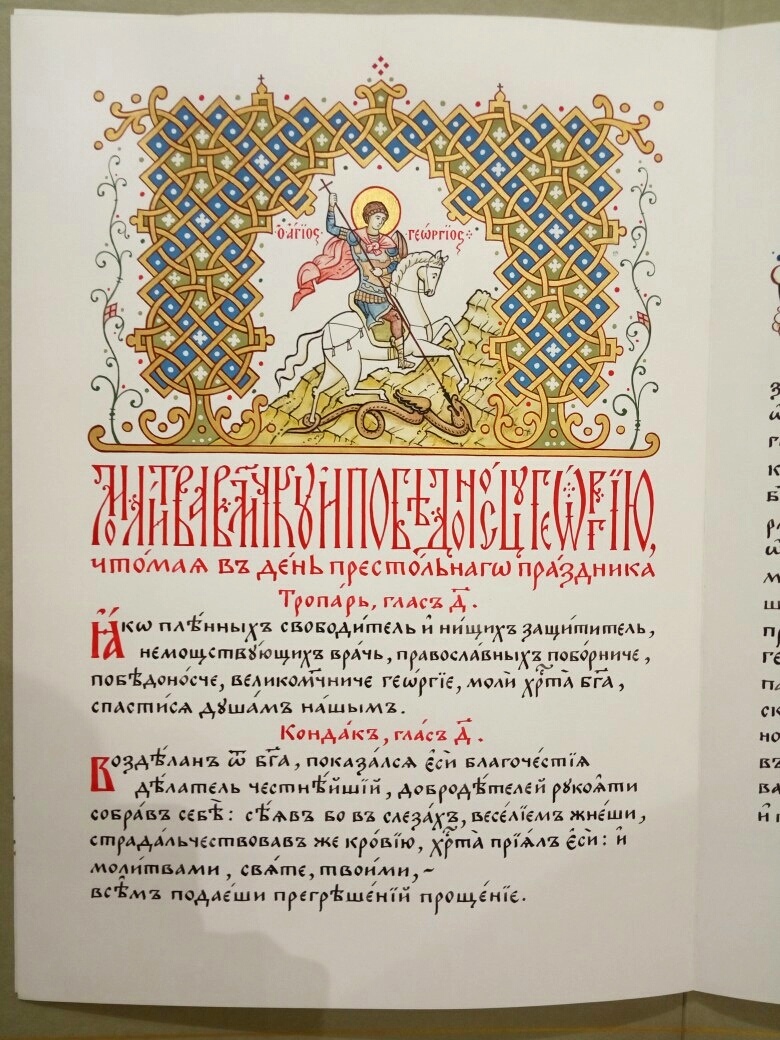 ὁ ἅгїос геѡ́ргїос
Моли́тва в҃мчку и҆ побѣдоно́сцу Геѡ́ргїю,
что́мая въ де́нь престо́льнагѡ пра́здника
Тропа́рь, гла́съ д҃.
Ꙗ҆́кѡ плѣ́нныхъ свободи́тель и҆ ни́щихъ защи́титель,
немощству́ющихъ вра́чь, правосла́вныхъ побо́рниче,
побѣдоно́сче, великомч҃ниче гео́ргїе, моли̇̀ хрⷭ҇та̀ бг҃а,
спасти́ся душа́мъ на́шымъ.
Конда́къ, гла́съ д҃.
Воздѣ́ланъ ѿ бг҃а, показа́лся є҆сѝ благоче́стїѧ
дѣ́латель честнѣ́йшїй, добродѣ́телей рукоѧ́ти
собра́въ себѣ̀: сѣ́ѧвъ бо въ слеза́хъ, весе́лїемъ жне́ши,
страда́льчествовавъ же кро́вїю, хрⷭ҇та̀ прїѧ́лъ є҆сѝ: и҆
моли́твами, свѧ́те, твои́ми,~
всѣ̑мъ подае́ши прегрѣше́нїй проще́нїе.